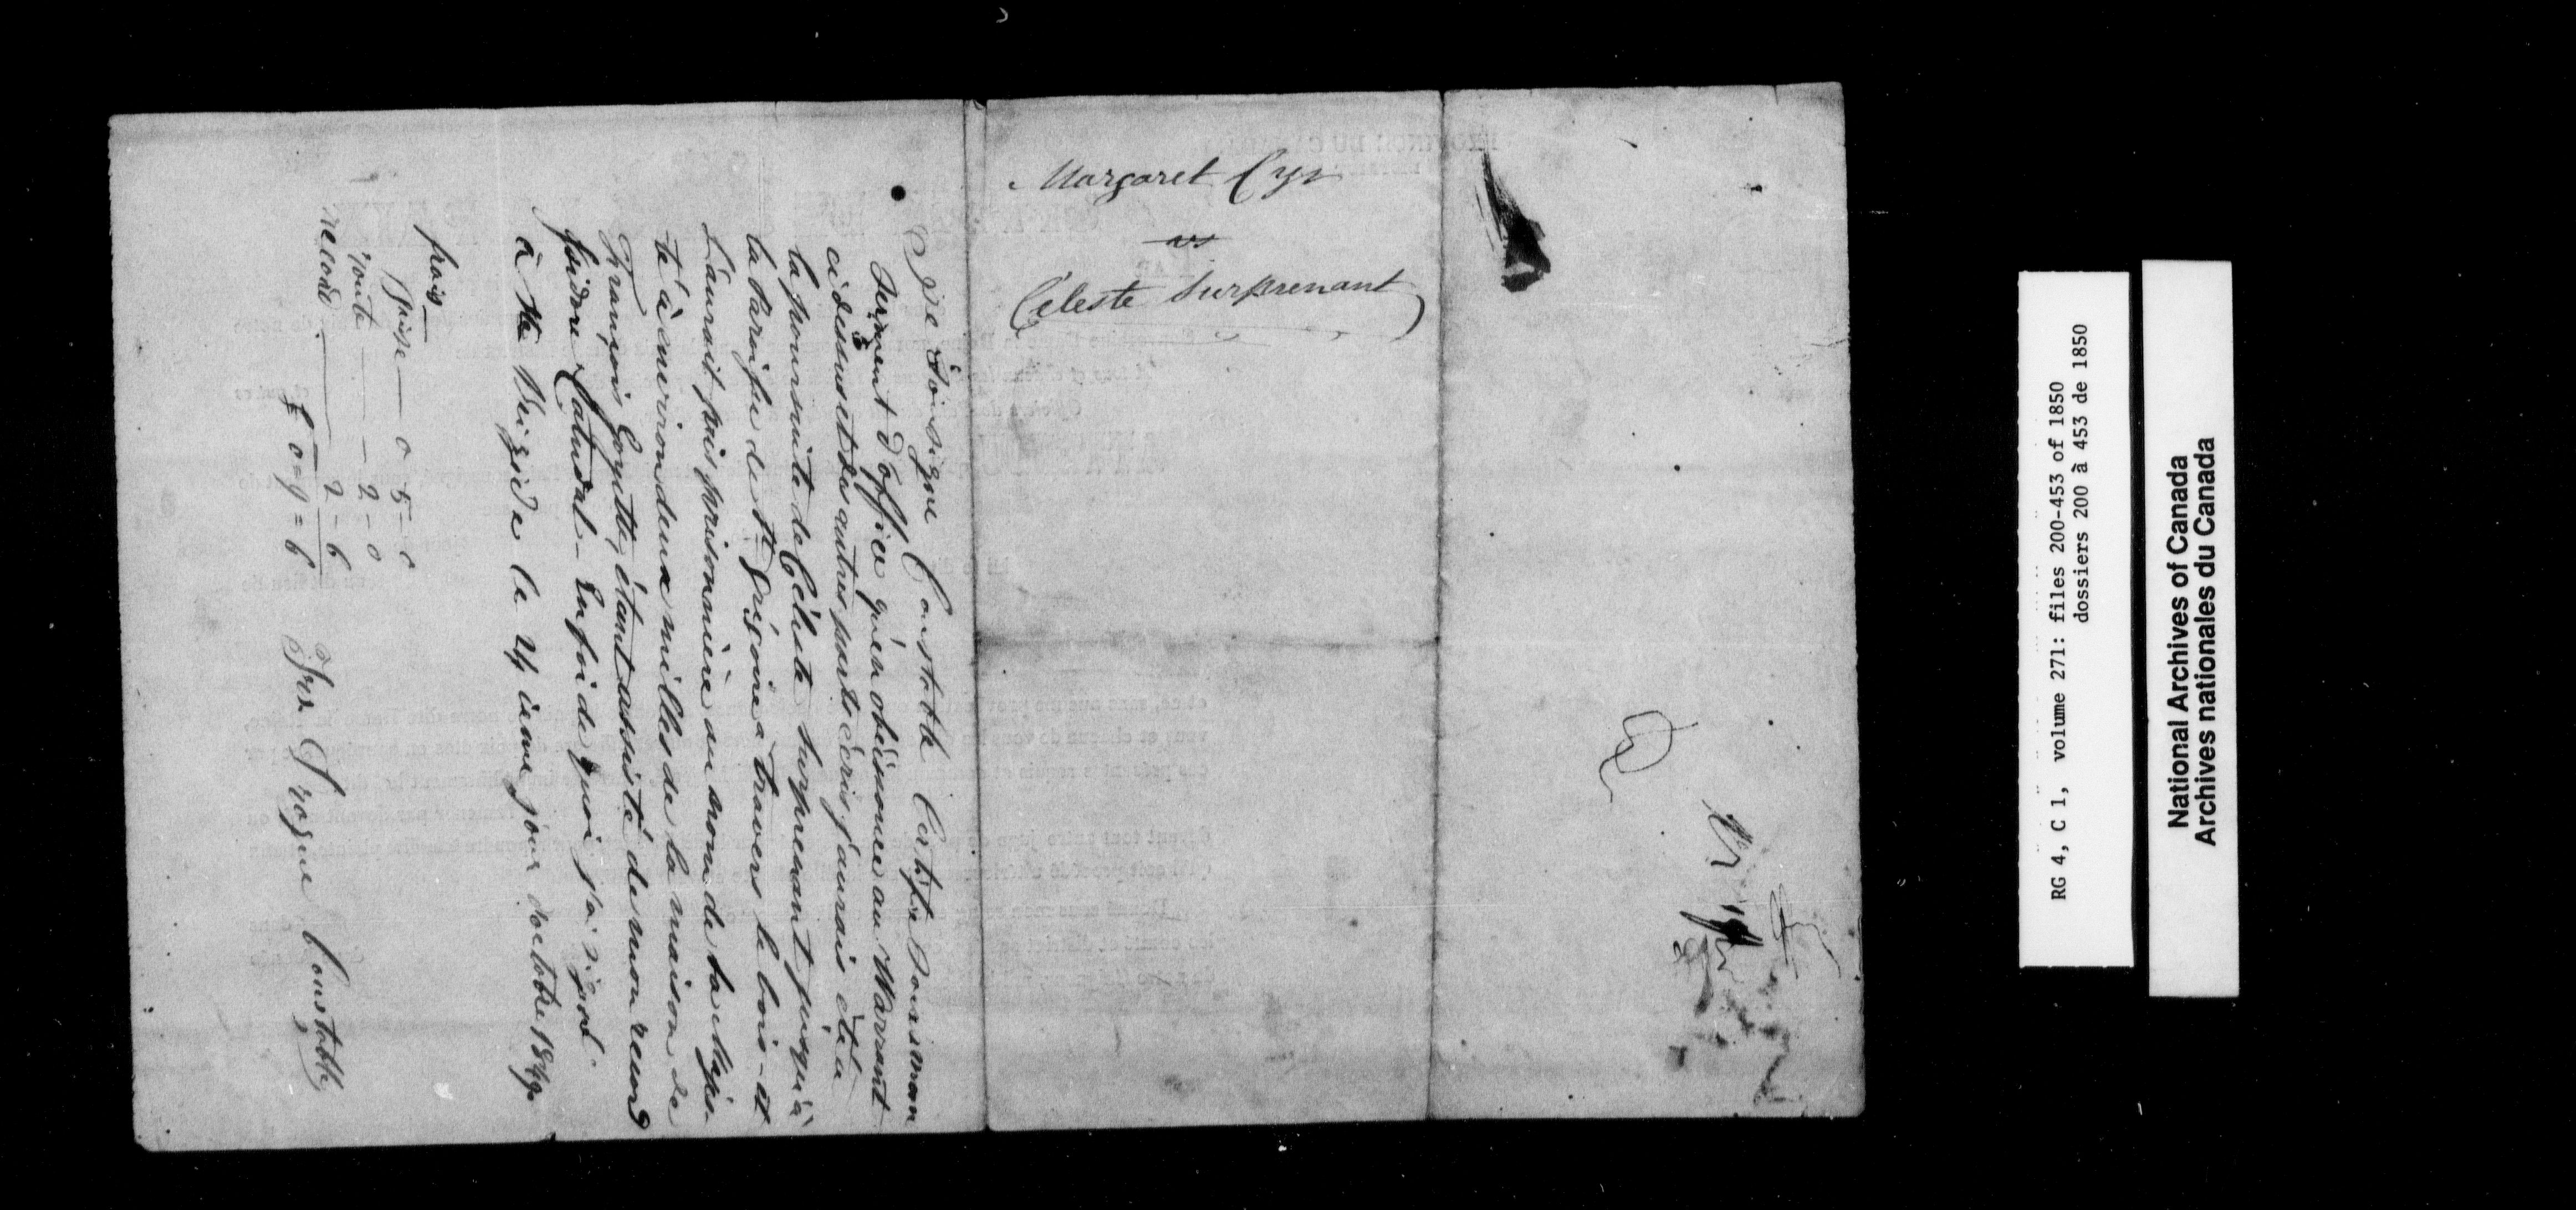 Margaret Cyr
vs
Céleste Surprenant
Je Soisigné Constable Certifie Sous mon
Serment D'office qu'en obéissance au Warrant
ci dessus et des autres parts écris j'aurais été a
la poursuite de Céleste Surprenant jusqu'à
la Paroisse de St Grégoire a travers le bois - et
L'aurait pris prisonnière au nom de Sa Majes-
té à environ deux milles de la maison de
François Goyette, étant assisté de mon record
Isidore Catudal - En foi de quoi j'ai signé
à Ste Brigide le 24 ieme jour d'octobre 1849
frais
Prise — 0 5 - 0
route — - 2 - 0
record — 2 - 6
£ 0 = 9 = 6
Frs Constable
RG 4, C 1, volume 271: files 200-453 of 1850
dossiers 200 à 453 de 1850
National Archives of Canada
Archives nationales du Canada